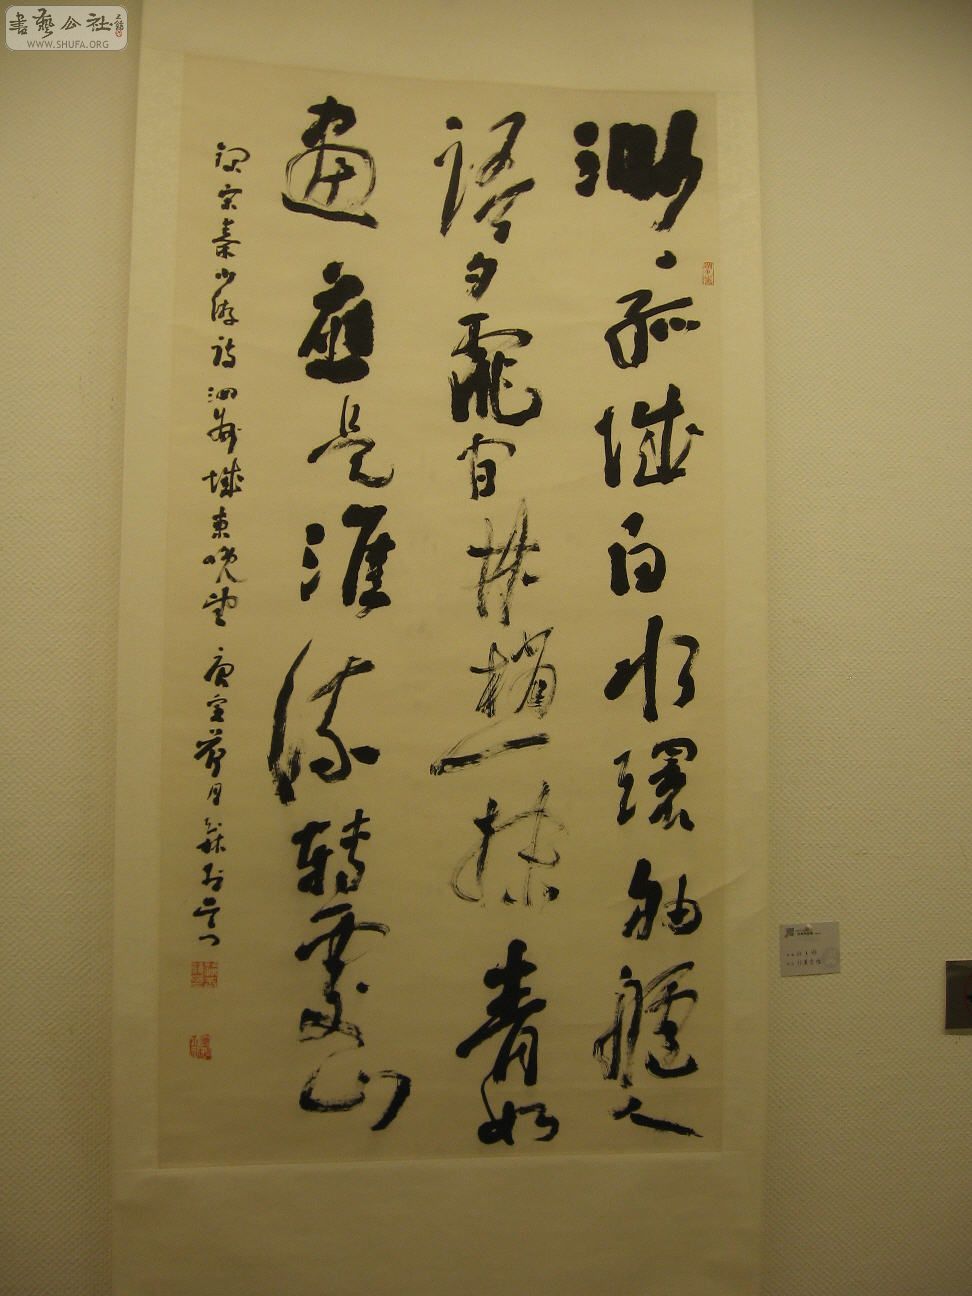 書藝公社
WWW.SHUFA.ORG
渺〻孤城白水環舳艫人
語夕霏間林梢一抹青如
畫應是淮流轉處山
宋秦少游詩泗州城東晚望 庚寅 月